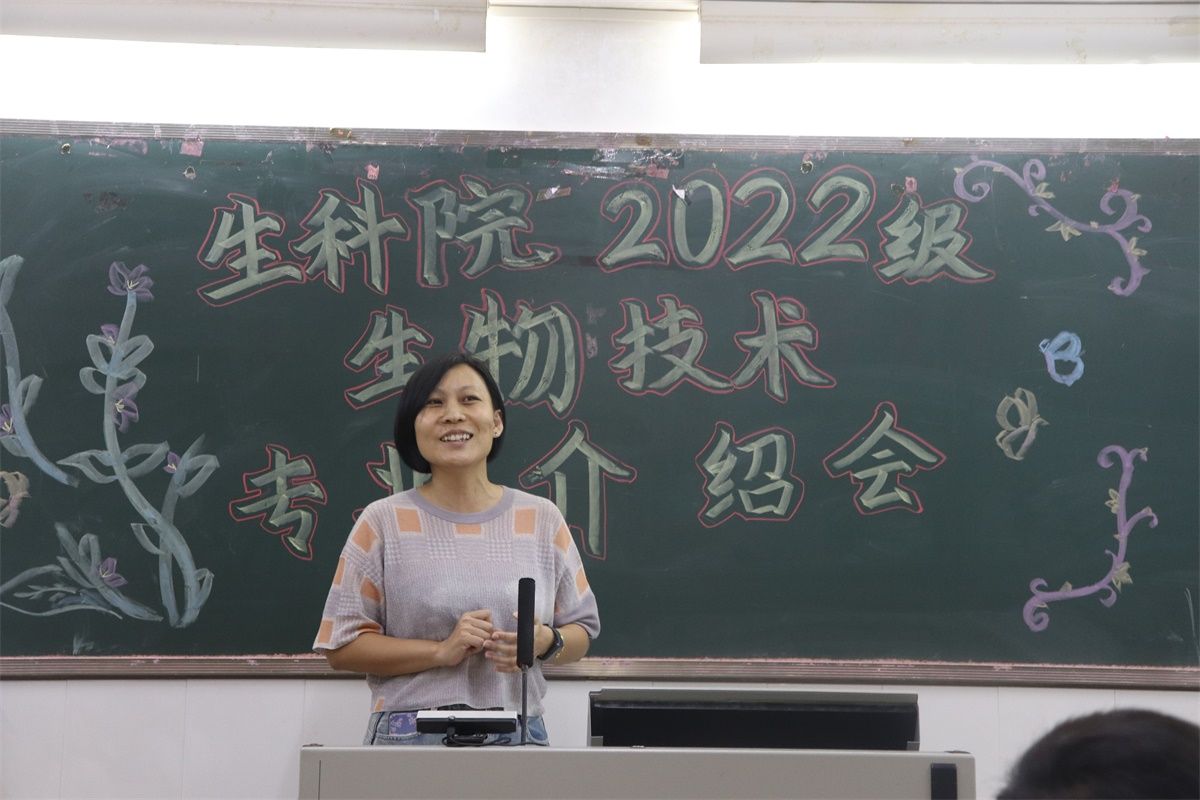 生科院 2022级
生物技术
专业介绍会